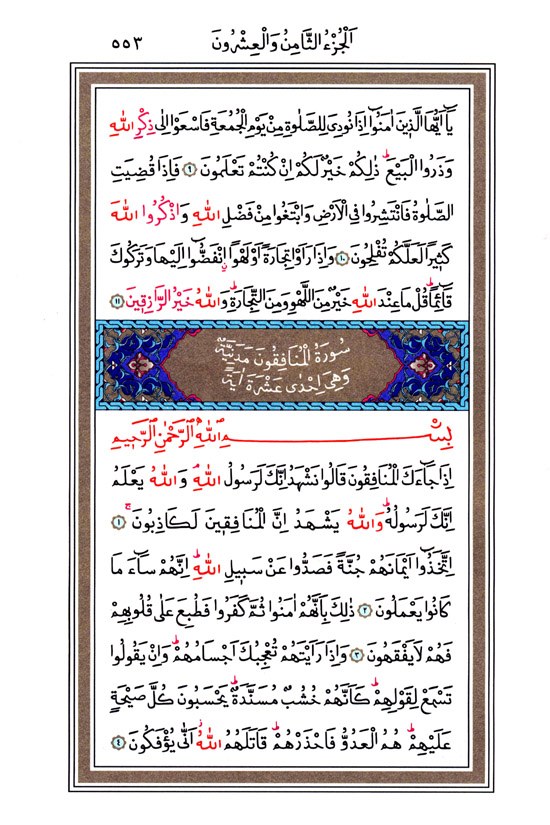 اَلْجُزْءُ الثَّامِنُ وَالْعِشْرُونَ ٥٥٣
يَٓا اَيُّهَا الَّذٖينَ اٰمَنُٓوا اِذَا نُودِىَ لِلصَّلٰوةِ مِنْ يَوْمِ الْجُمُعَةِ فَاسْعَوْا اِلٰى ذِكْرِ اللّٰهِ
وَذَرُوا الْبَيْعَؕ ذٰلِكُمْ خَيْرٌ لَكُمْ اِنْ كُنْتُمْ تَعْلَمُونَ ٩ فَاِذَا قُضِيَتِ
الصَّلٰوةُ فَانْتَشِرُوا فِى الْاَرْضِ وَابْتَغُوا مِنْ فَضْلِ اللّٰهِ وَاذْكُرُوا اللّٰهَ
كَثٖيرًا لَعَلَّكُمْ تُفْلِحُونَ ١٠ وَاِذَا رَاَوْا تِجَارَةً اَوْ لَهْوًاۨ انْفَضُّٓوا اِلَيْهَا وَتَرَكُوكَ
قَٓائِمًاؕ قُلْ مَا عِنْدَ اللّٰهِ خَيْرٌ مِنَ اللَّهْوِ وَمِنَ التِّجَارَةِؕ وَاللّٰهُ خَيْرُ الرَّازِقٖينَ ١١
سُورَةُ الْمُنَافِقُونَ مَدَنِيَّةٌ
وَهِىَ اِحْدٰى عَشْرَةَ اٰيَةً
بِسْمِ اللّٰهِ الرَّحْمٰنِ الرَّحٖيمِ
اِذَا جَٓاءَكَ الْمُنَافِقُونَ قَالُوا نَشْهَدُ اِنَّكَ لَرَسُولُ اللّٰهِۘ وَاللّٰهُ يَعْلَمُ
اِنَّكَ لَرَسُولُهُؕ وَاللّٰهُ يَشْهَدُ اِنَّ الْمُنَافِقٖينَ لَكَاذِبُونَۚ ١
اِتَّخَذُٓوا اَيْمَانَهُمْ جُنَّةً فَصَدُّوا عَنْ سَبٖيلِ اللّٰهِؕ اِنَّهُمْ سَٓاءَ مَا
كَانُوا يَعْمَلُونَ ٢ ذٰلِكَ بِاَنَّهُمْ اٰمَنُوا ثُمَّ كَفَرُوا فَطُبِعَ عَلٰى قُلُوبِهِمْ
فَهُمْ لَا يَفْقَهُونَ ٣ وَاِذَا رَاَيْتَهُمْ تُعْجِبُكَ اَجْسَامُهُمْؕ وَاِنْ يَقُولُوا
تَسْمَعْ لِقَوْلِهِمْؕ كَاَنَّهُمْ خُشُبٌ مُسَنَّدَةٌؕ يَحْسَبُونَ كُلَّ صَيْحَةٍ
عَلَيْهِمْؕ هُمُ الْعَدُوُّ فَاحْذَرْهُمْؕ قَاتَلَهُمُ اللّٰهُؗ اَنّٰى يُؤْفَكُونَ ٤